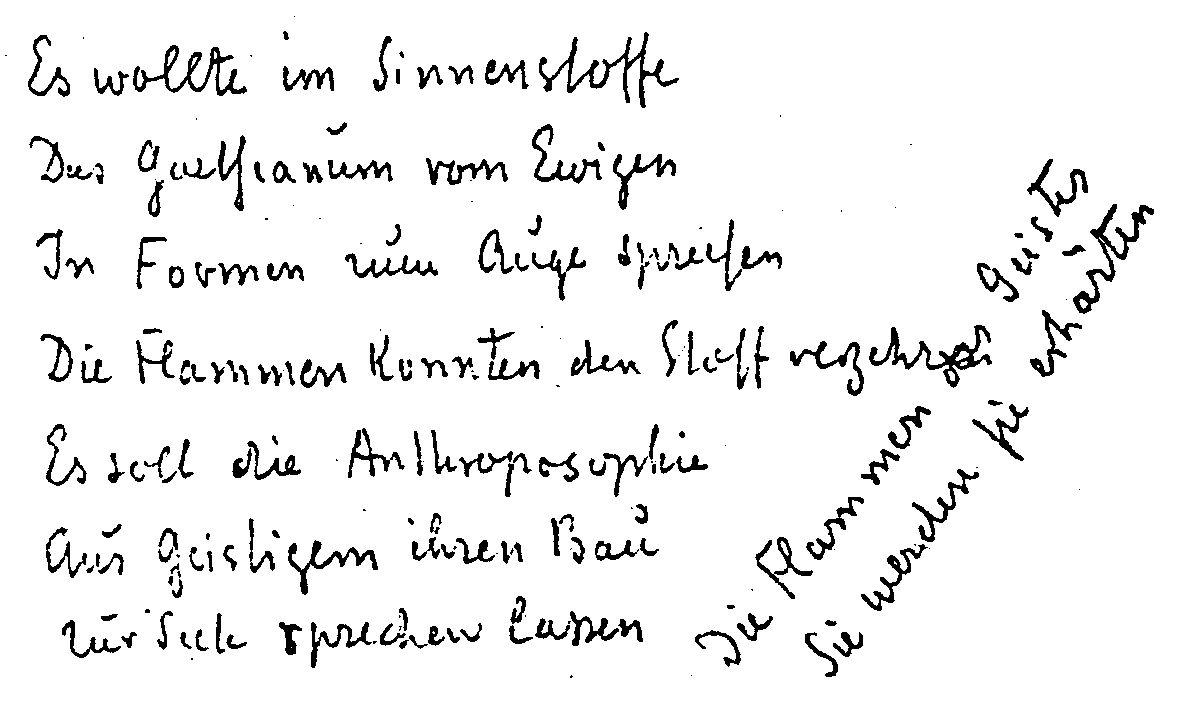 Es wollte im Sinnenstoffe
Das Goetheanum vom Ewigen
In Formen zum Auge sprechen
Die Flammen konnten den Stoff verzehren
Es soll die Anthroposophie
Aus Geistigem ihren Bau
Zur Seele sprechen lassen
Die Flammen des Geistes
Sie werden sie erhärten